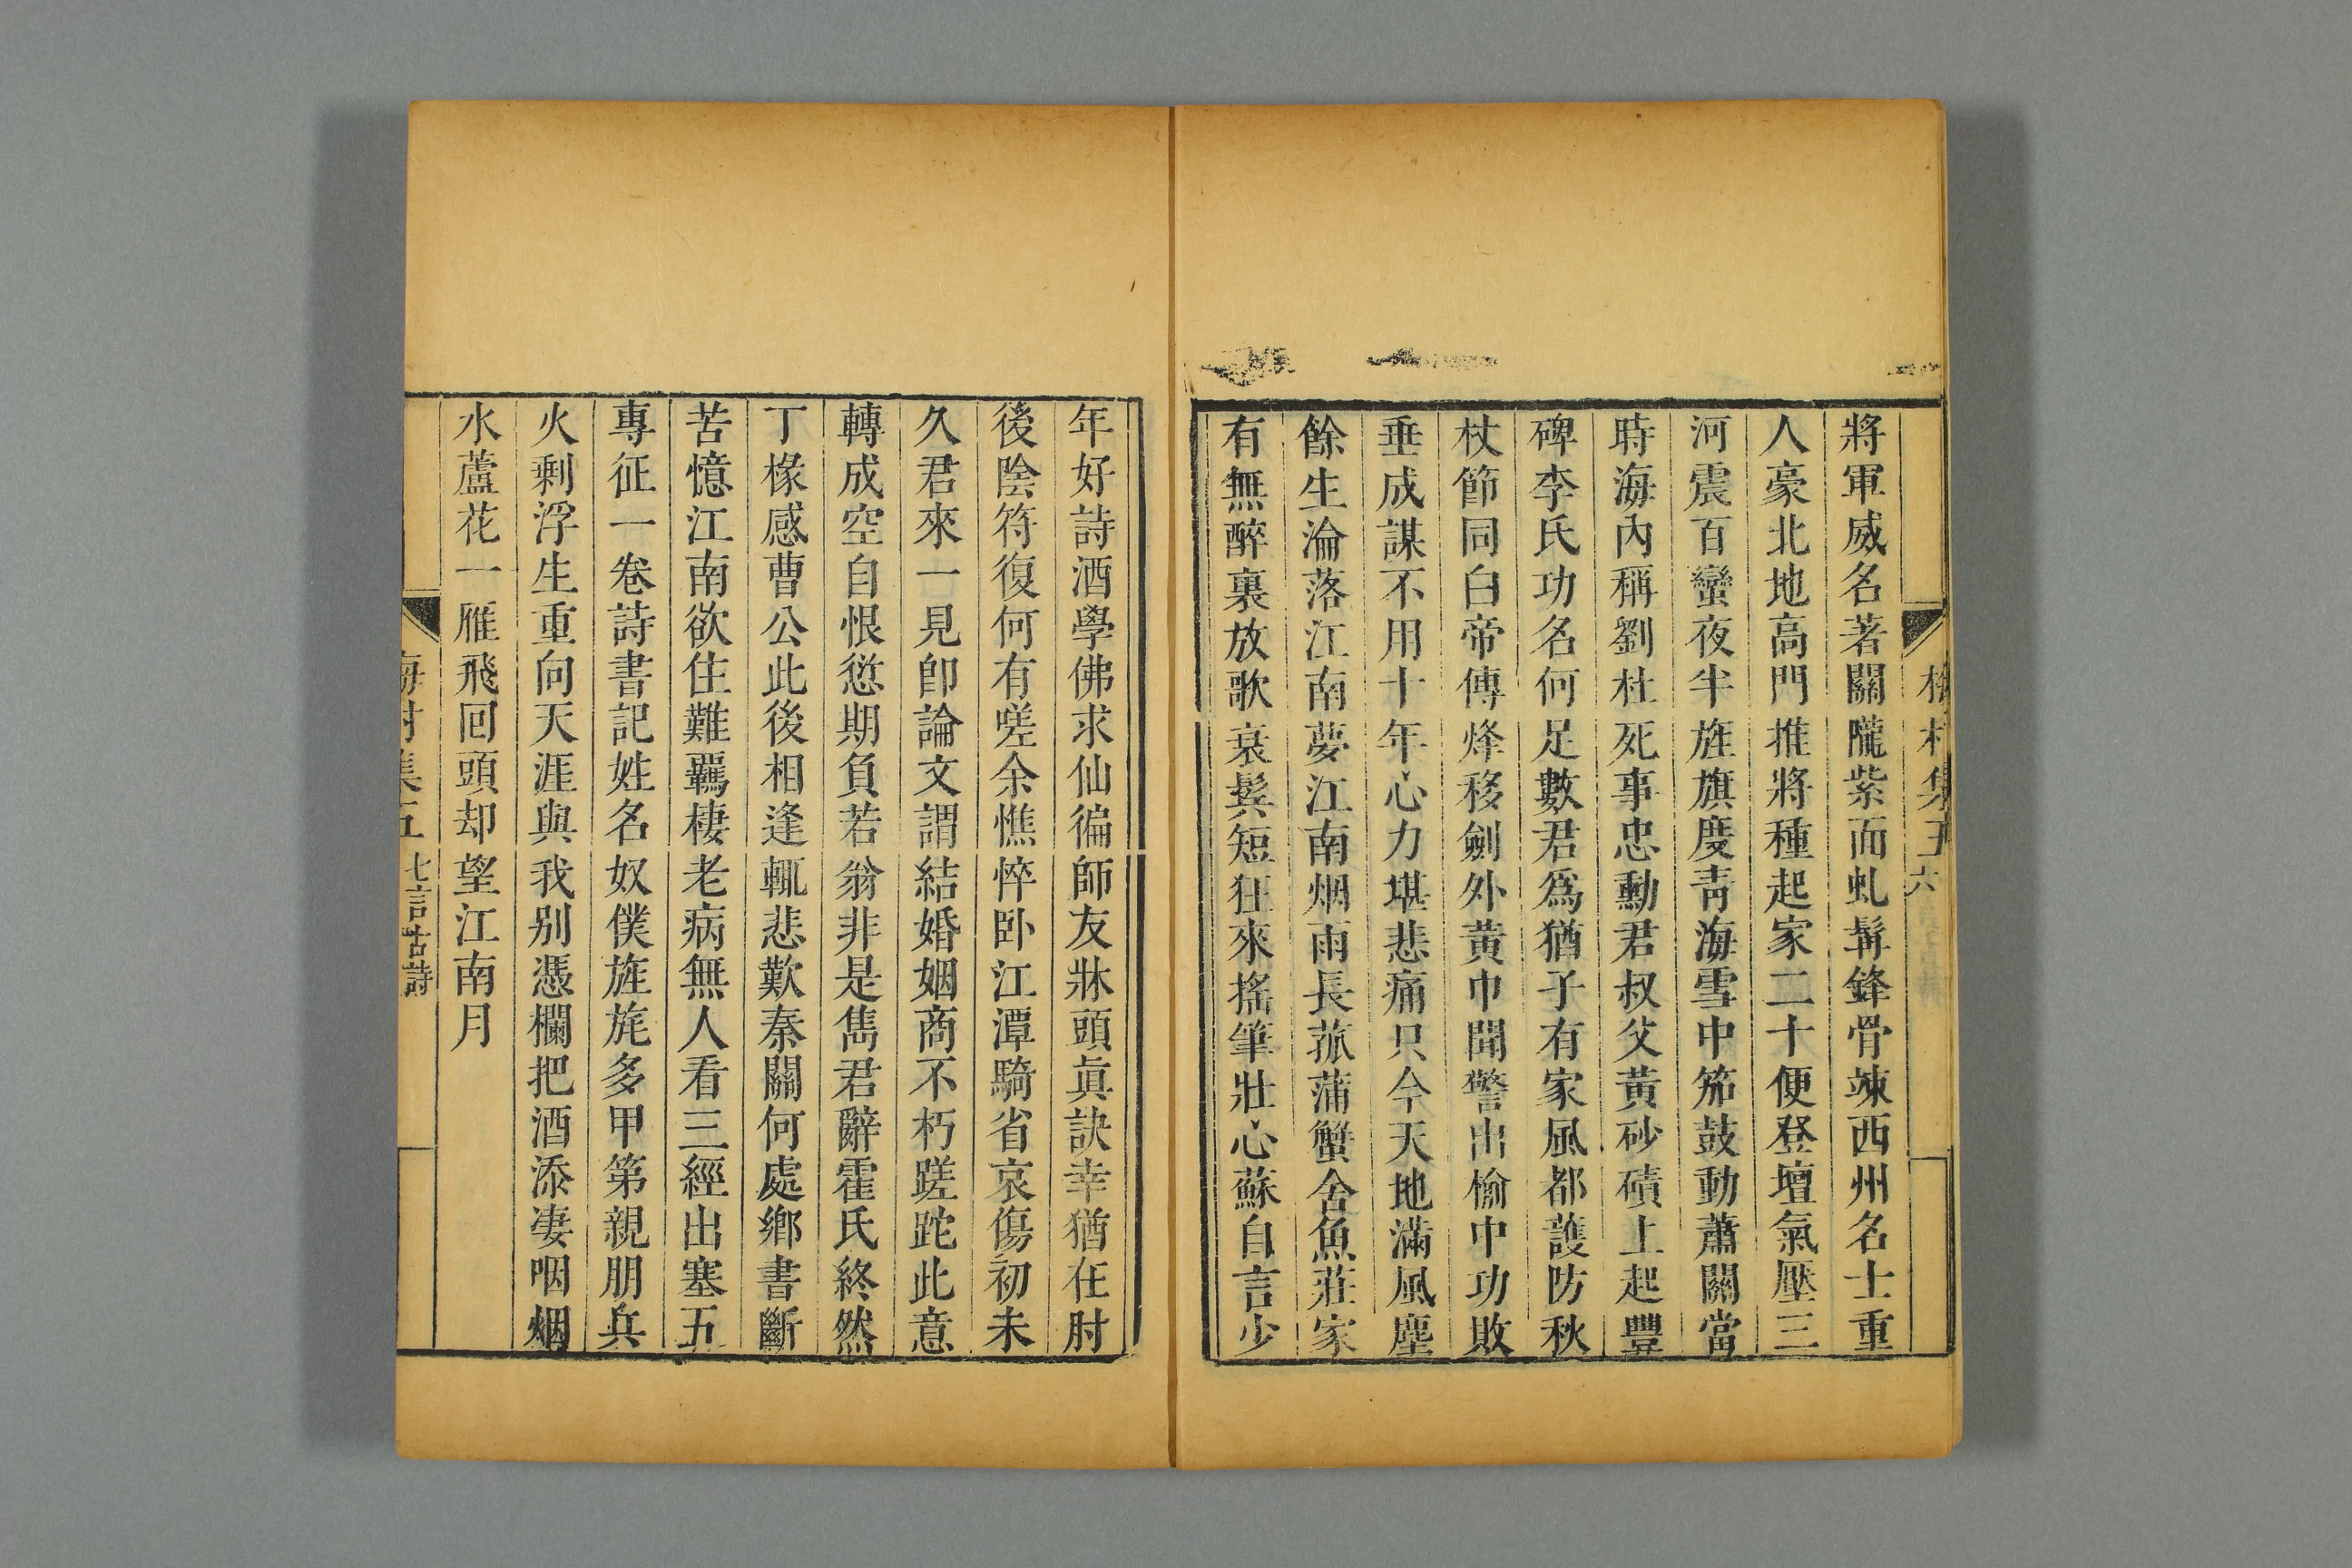 將軍威名著關隴紫面虬髯鋒骨竦西州名士重
人豪北地高門推將種起家二十便登壇氣壓三
河震百蠻夜半旌旗度靑海雪中笳鼓動蕭關當
時海內稱劉杜死事忠勳君叔父黃砂磧上起豐
碑李氏功名何足數君爲猶子有家風都護防秋
杖節同白帝傳烽移劍外黃巾聞警出楡中功敗
垂成謀不用十年心力堪悲痛只今天地滿風塵
餘生淪落江南夢江南烟雨長菰蒲蟹舍魚莊家
有無醉裏放歌衰鬂短狂來搖筆壯心蘇自言少
年好詩酒學佛求仙徧師友牀頭眞訣幸猶在肘
後陰符復何有嗟余憔悴卧江潭騎省哀傷初未
久君來一見卽論文謂結婚姻商不朽蹉跎此意
轉成空自恨愆期負若翁非是雋君辭霍氏終然
丁椽感曹公此後相逢輒悲歎秦關何處鄉書斷
苦憶江南欲住難羈棲老病無人看三經出塞五
專征一卷詩書記姓名奴僕旌旄多甲第親朋兵
火剩浮生重向天涯與我别憑欄把酒添淒咽烟
水蘆花一雁飛回頭却望江南月
梅村集五 七言古詩